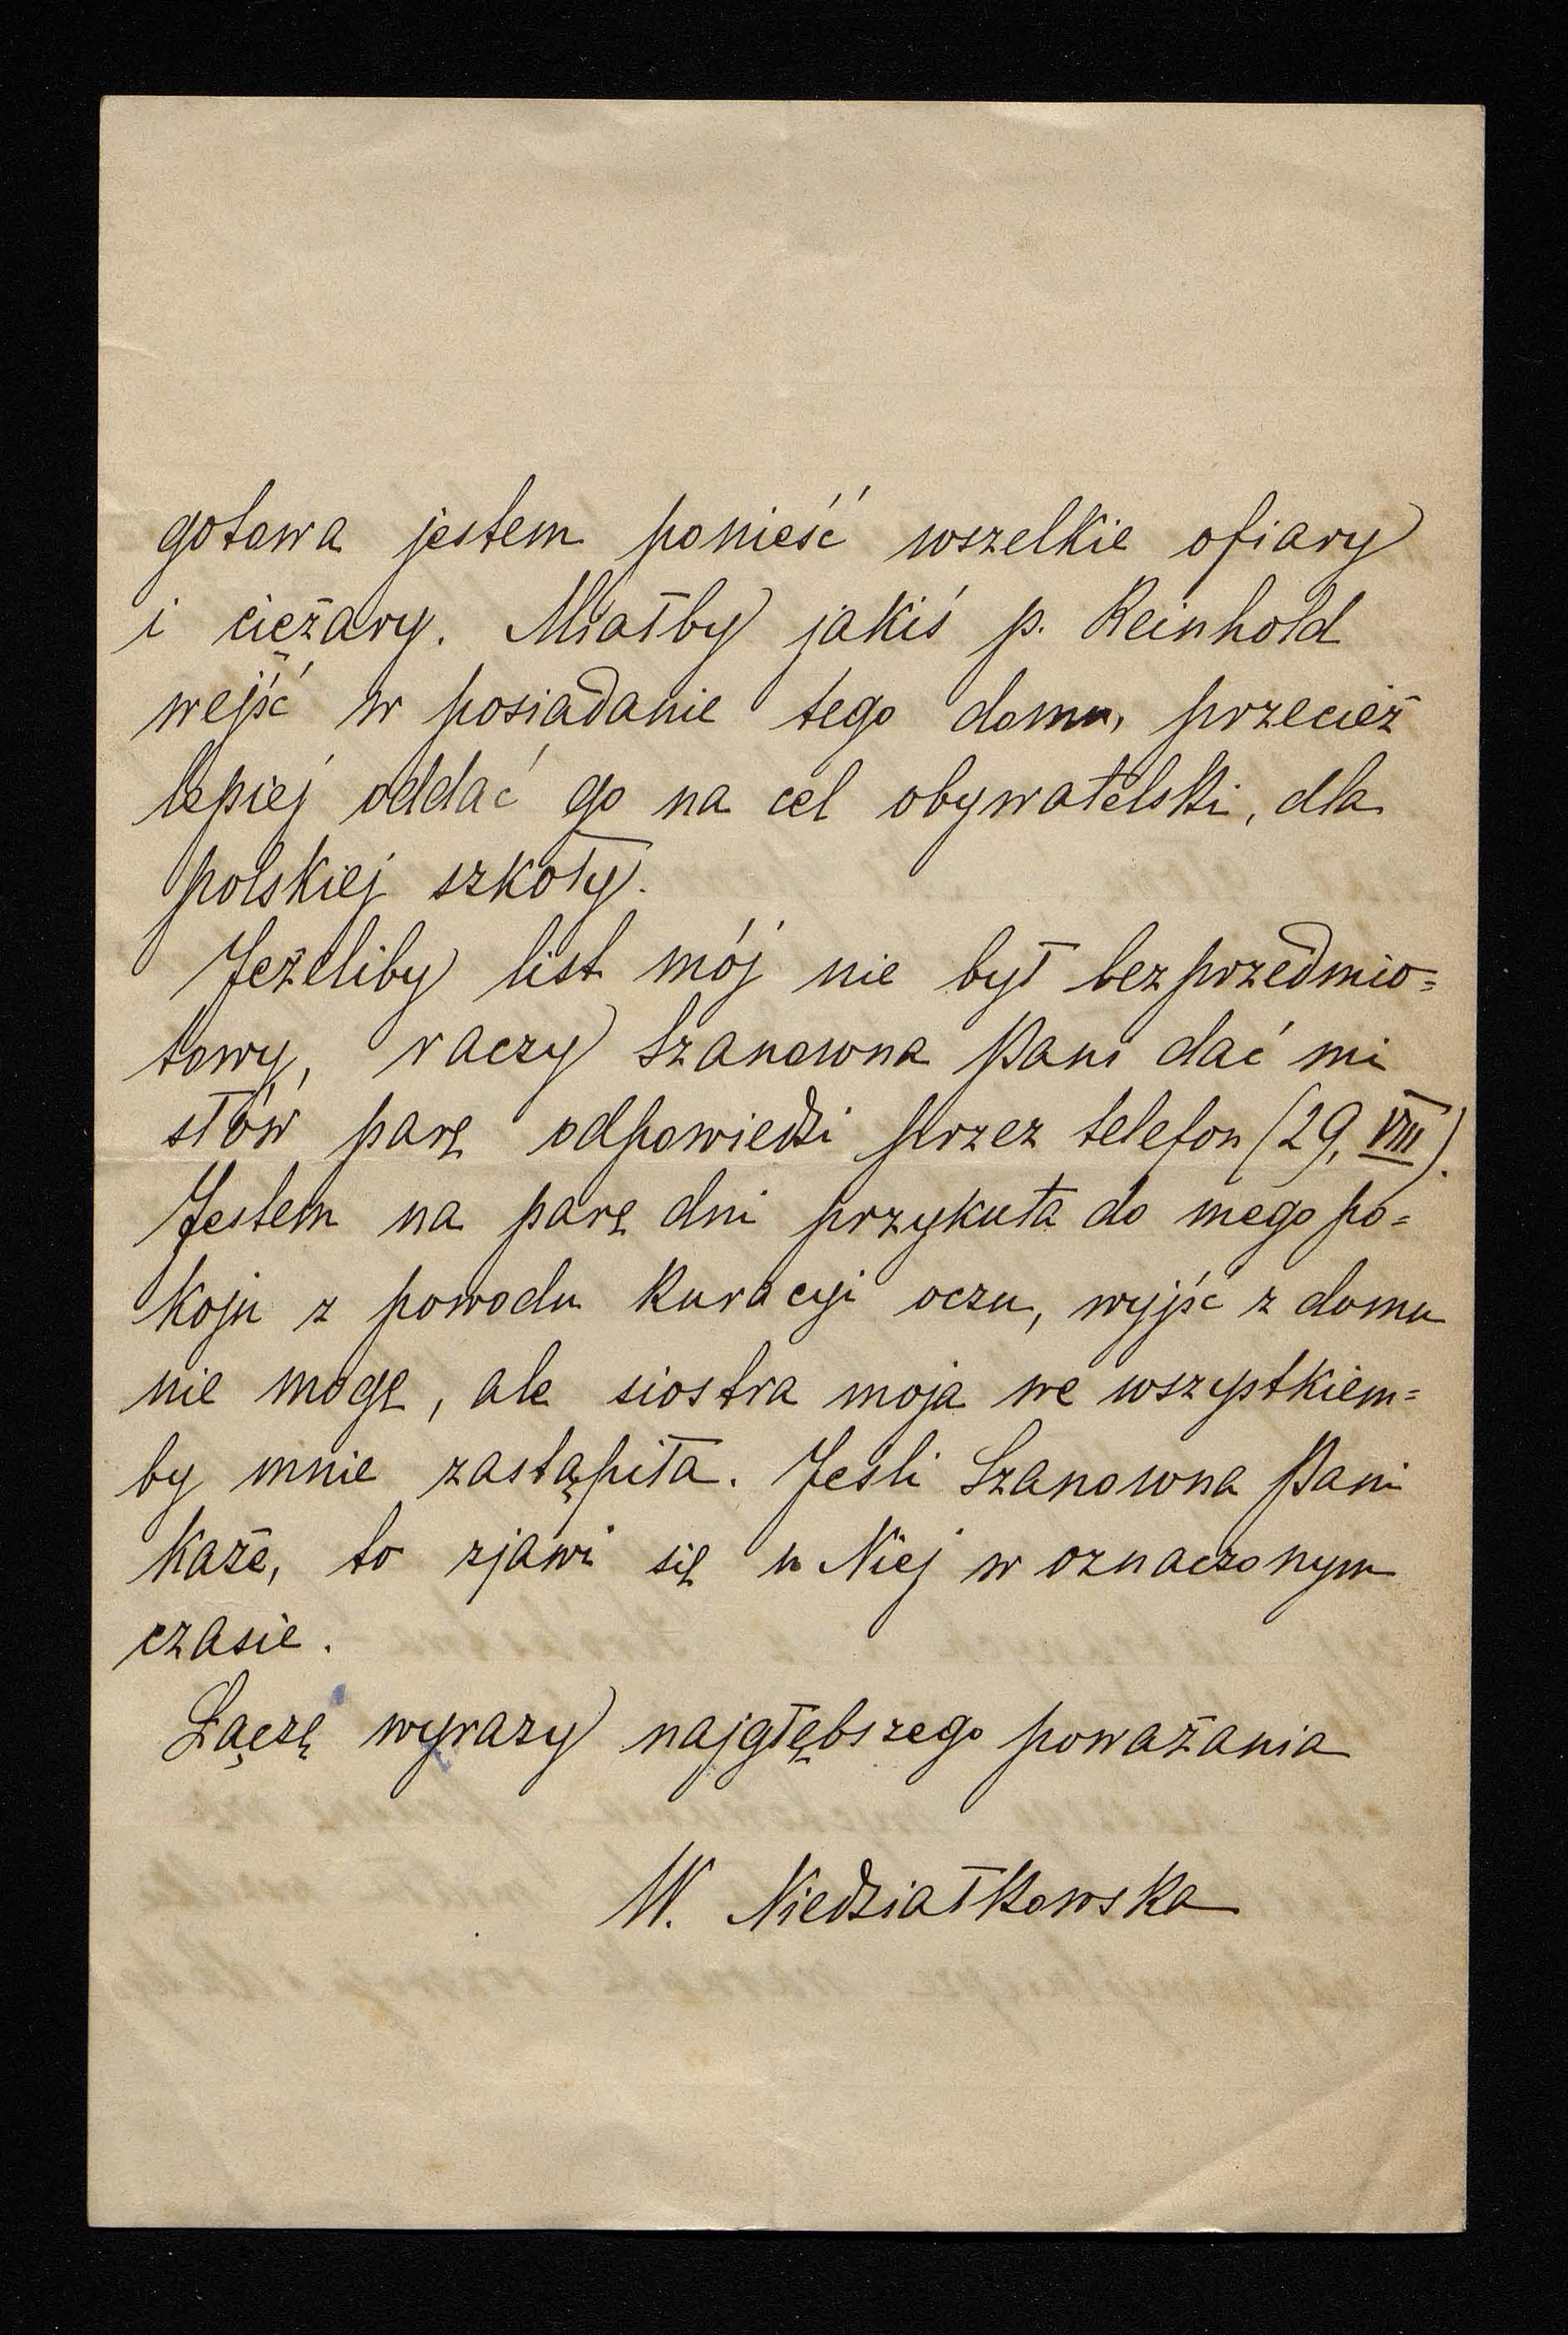 gotowa jestem ponieść wszelkie ofiary
i ciężary. Miałby jakiś p. Reinhold
wejść w posiadanie tego domu, przecież
lepiej oddać go na cel obywatelski, dla
polskiej szkoły.
Jeżeliby list mój nie był bezprzedmio=
towy, raczy Szanowna Pani dać mi
słów parę odpowiedzi przez telefon (29, VIII).
Jestem na parę dni przykuta do mego po=
koju z powodu kuracyi oczu, wyjść z domu
nie mogę, ale siostra moja we wszystkiem=
by mnie zastąpiła. Jeśli Szanowna Pani
każe, to zjawi się u Niej w oznaczonym
czasie.
Łączę wyrazy najgłębszego poważania
W. Niedziałkowska